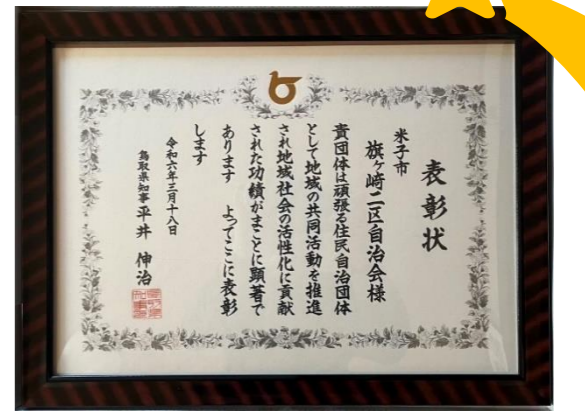 表彰状
米子市
旗ケ崎二区自治会様
貴団体は頑張る住民自治団体
として地域の共同活動を推進
され地域社会の活性化に貢献
された功績がまことに顕著で
あります　よってここに表彰
します
令和六年三月十八日
鳥取県知事 平井 伸治